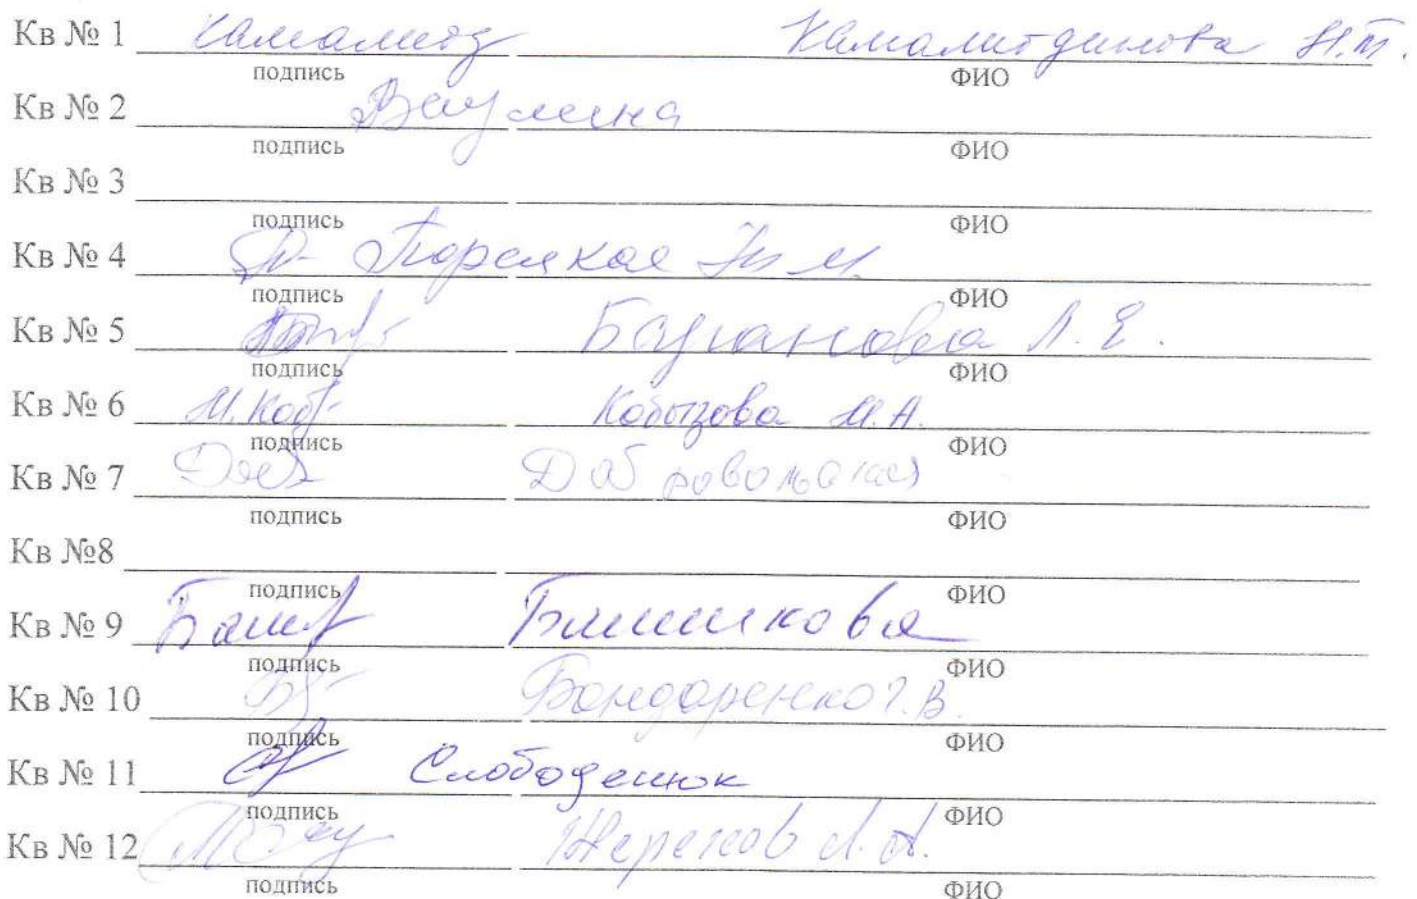 Кв № 1 Камалитд Камалитдинова Н.Т.
подпись ФИО
Кв № 2 Ваулина
подпись ФИО
Кв № 3
подпись ФИО
Кв № 4
подпись ФИО
Кв № 5 Баранова Л. Е.
подпись ФИО
Кв № 6 М.Коб Кобызова М.А.
подпись ФИО
Кв № 7 Доб Добровольская
подпись ФИО
Кв №8
подпись ФИО
Кв № 9 Баш
подпись ФИО
Кв № 10 Бондаренко Г.В.
подпись ФИО
Кв № 11 Слободенюк
подпись ФИО
Кв № 12
подпись ФИО